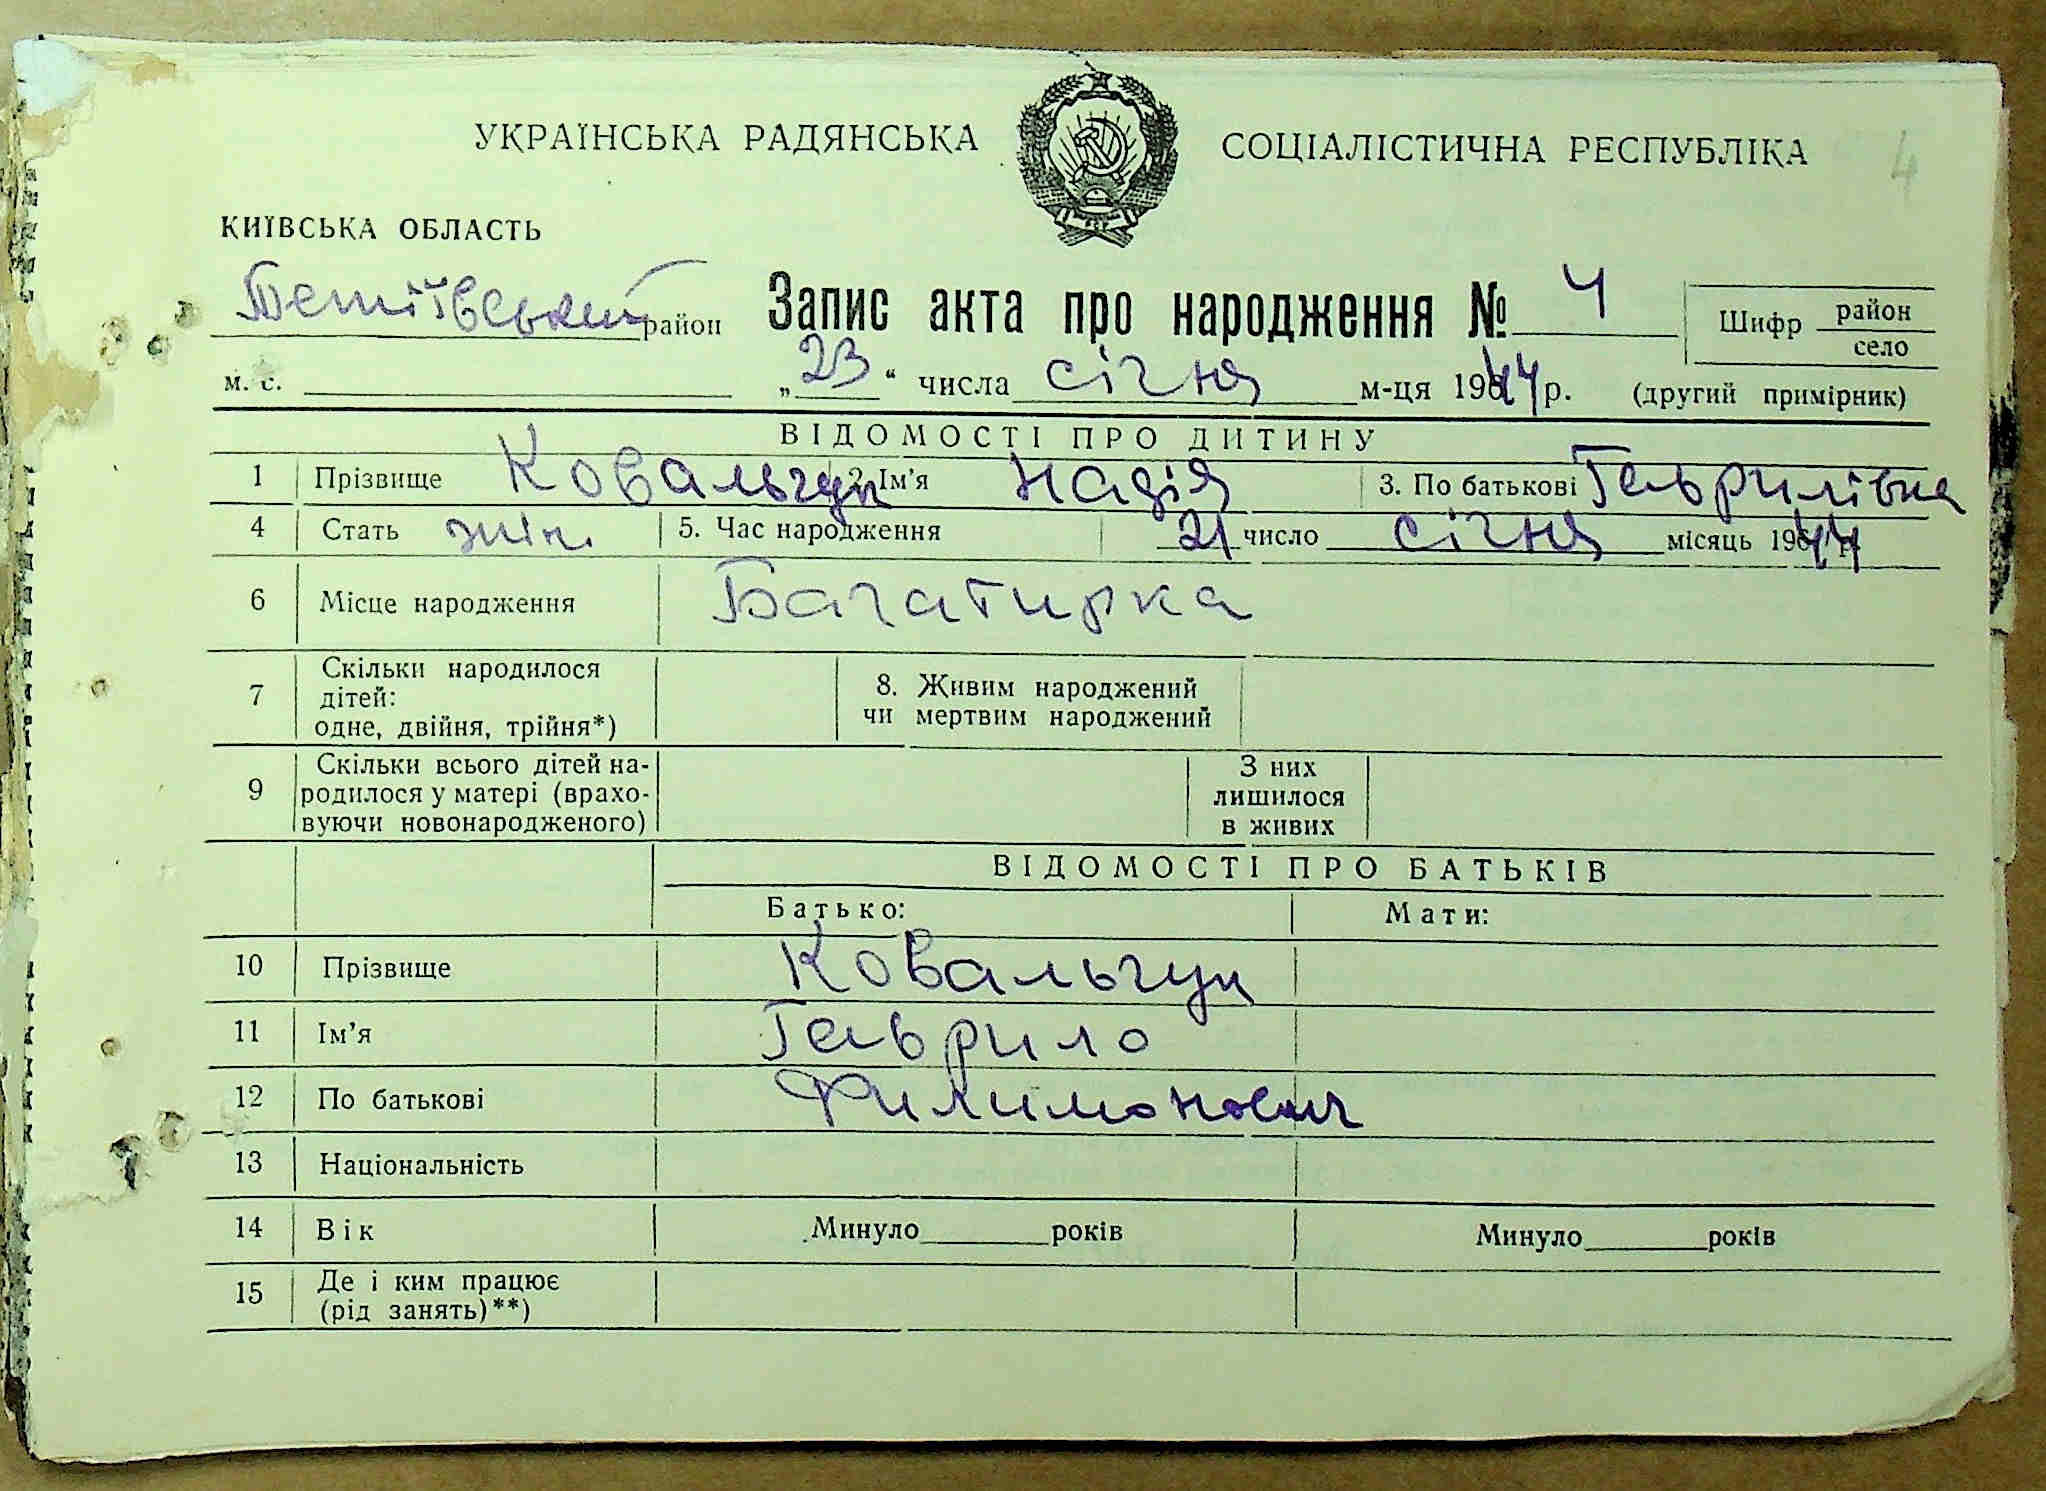 УКРАЇНСЬКА РАДЯНСЬКА СОЦІАЛІСТИЧНА РЕСПУБЛІКА 4
КИЇВСЬКА ОБЛАСТЬ
Тетіївський район Запис акта про народження № 4 Шифр район село
м. с. „23“ числа січня м-ця 1944 р. (другий примірник)
ВІДОМОСТІ ПРО ДИТИНУ
1 Прізвище Ковальчук 2. Ім’я Надія 3. По батькові Гаврилівна
4 Стать жін. 5. Час народження 21 число січня місяць 1944 р.
6 Місце народження Багатирка
7 Скільки народилося дітей: одне, двійня, трійня*) 8. Живим народжений чи мертвим народжений
9 Скільки всього дітей народилося у матері (враховуючи новонародженого) З них лишилося в живих
ВІДОМОСТІ ПРО БАТЬКІВ
Батько: Мати:
10 Прізвище Ковальчук
11 Ім’я Гаврило
12 По батькові Филимонович
13 Національність
14 Вік Минуло років Минуло років
15 Де і ким працює (рід занять)**)